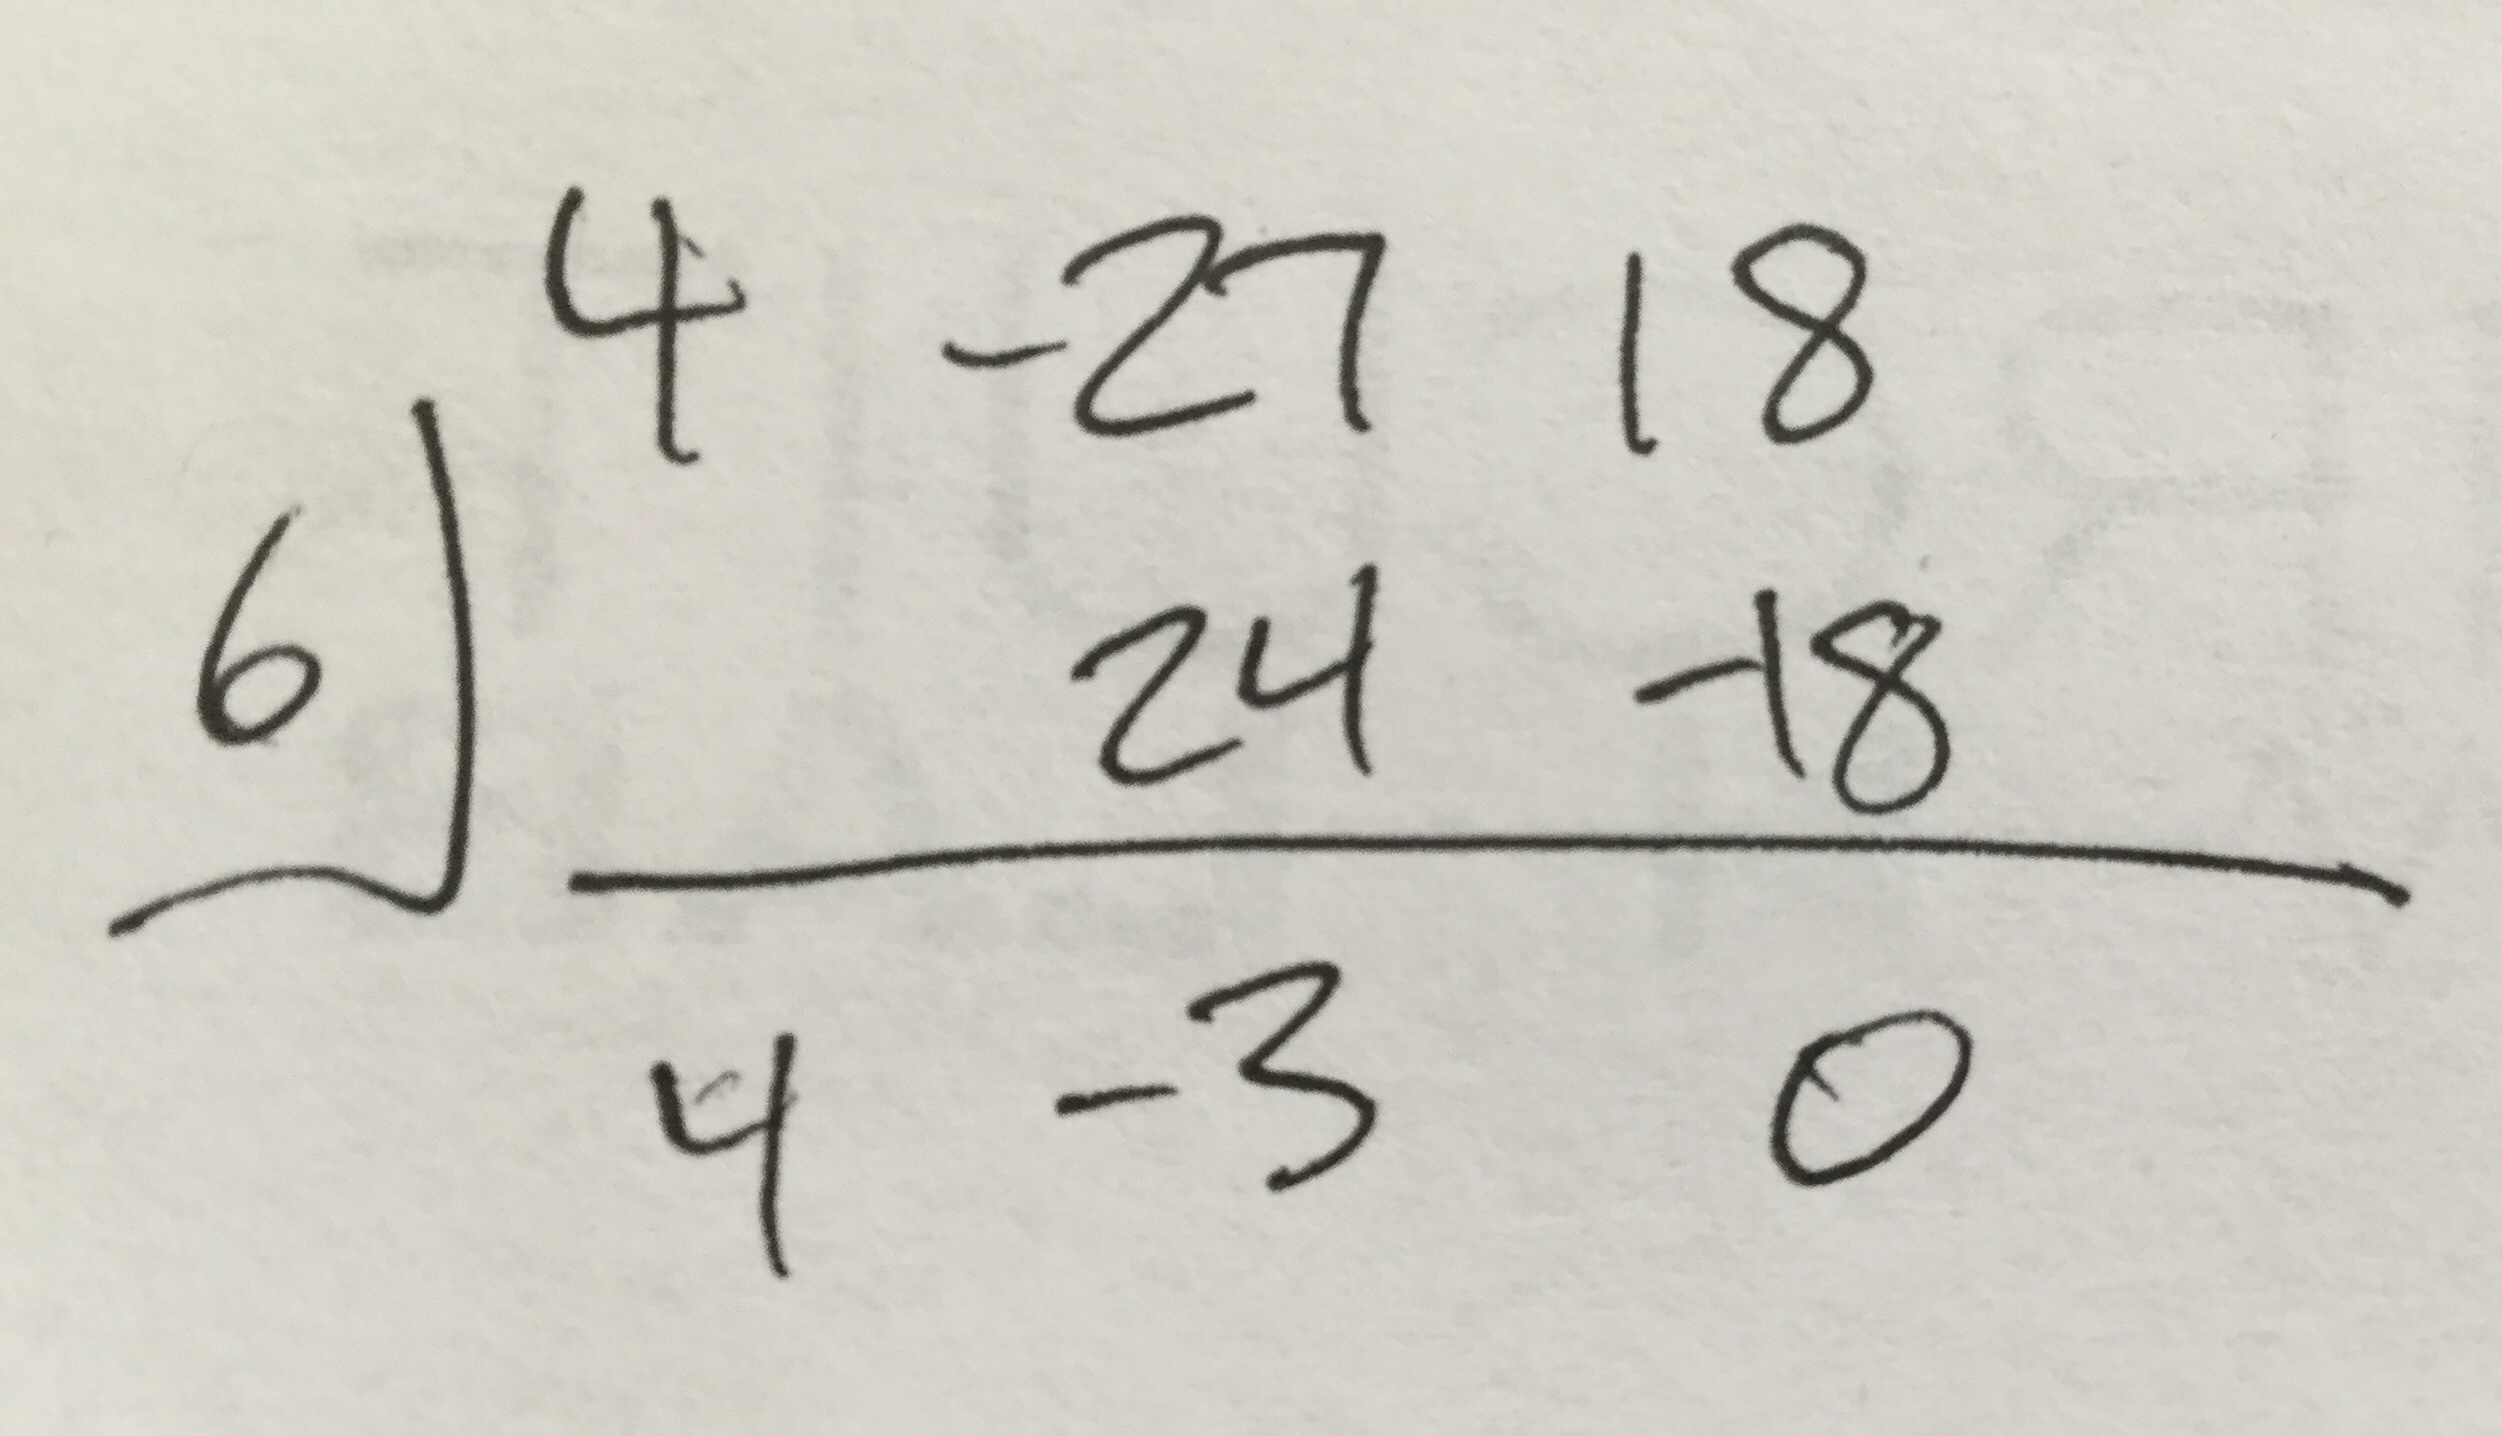 4 -27 18
6
24 -18
4 -3 0